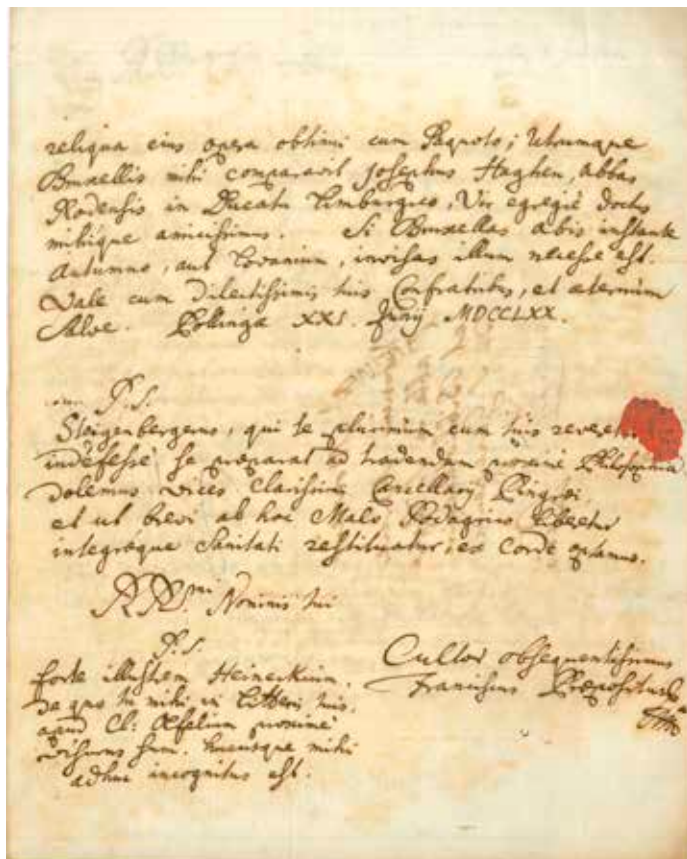 reliqua eius opera obtinui cum Paquoto; Utrumque
Bruxellis mihi comparavit Josephus Haghen, Abbas
Rodensis in Ducatu Limburgico, Vir egregiè doctus
mihique amicissimus. Si Bruxellas abis instante
Autumno, aut Lovanium, invisas illum necesse est.
Vale cum Dilectissimis tuis Confratribus, et aeternùm
Salve. Pollingæ XXI. Junij MDCCLXX.
P.S.
Steigenbergerus, qui te plurimum cum tuis reveretur
indefessè se præparat ad tradendam proximè Philosophiam
dolemus vices Clarissimi Cancellarij Pingrei,
et ut brevi ab hoc Malo Podagrico liberetur
integræque Sanitati restituatur, ex Corde optamus.
RR.mi Nominis tui
P.S.
forte illustrem Heineckium.
de quo tu mihi in Litteris tuis.
apud Cl: Œfelium proximè
visurus sum. hucusque mihi
adhuc incognitus est.
Cultor obsequentissimus
Franciscus Præpositus